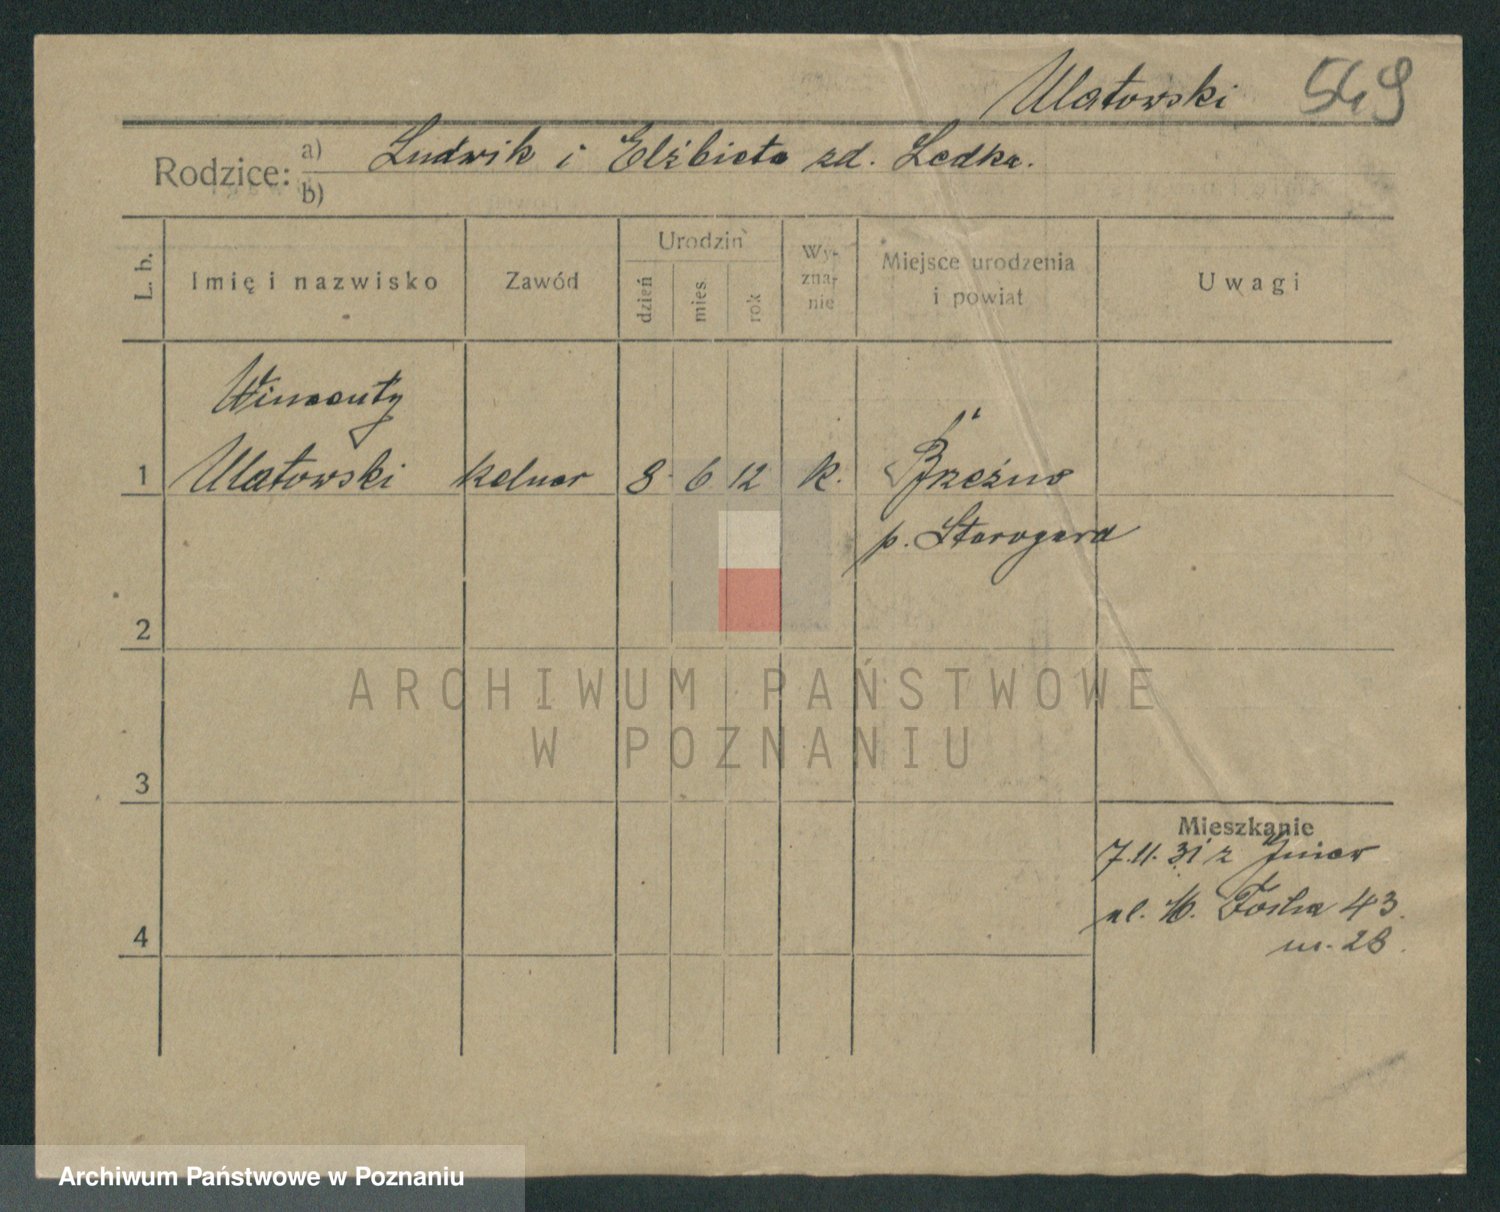 Ulatowski 549
Rodzice: a) Ludwik i Elżbieta zd. Ledka.
b)
L. b. Imię i nazwisko Zawód Urodzin dzień mies. rok Wy-zna-nie Miejsce urodzenia i powiat Uwagi
Wincenty
1 Ulatowski kelner 8 6 12 k. Brzeźno
p. Starogard
2
ARCHIWUM PAŃSTWOWE
W POZNANIU
3
Mieszkanie
7.11.31 z Gniew
ul. M. Focha 43
4
m. 28.
Archiwum Państwowe w Poznaniu